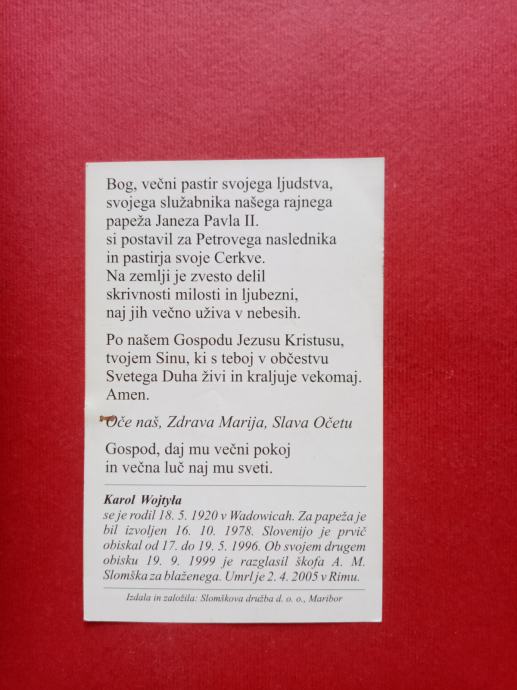 Bog, večni pastir svojega ljudstva,
svojega služabnika našega rajnega
papeža Janeza Pavla II.
si postavil za Petrovega naslednika
in pastirja svoje Cerkve.
Na zemlji je zvesto delil
skrivnosti milosti in ljubezni,
naj jih večno uživa v nebesih.
Po našem Gospodu Jezusu Kristusu,
tvojem Sinu, ki s teboj v občestvu
Svetega Duha živi in kraljuje vekomaj.
Amen.
Oče naš, Zdrava Marija, Slava Očetu
Gospod, daj mu večni pokoj
in večna luč naj mu sveti.
Karol Wojtyła
se je rodil 18. 5. 1920 v Wadowicah. Za papeža je
bil izvoljen 16. 10. 1978. Slovenijo je prvič
obiskal od 17. do 19. 5. 1996. Ob svojem drugem
obisku 19. 9. 1999 je razglasil škofa A. M.
Slomška za blaženega. Umrl je 2. 4. 2005 v Rimu.
Izdala in založila: Slomškova družba d. o. o., Maribor